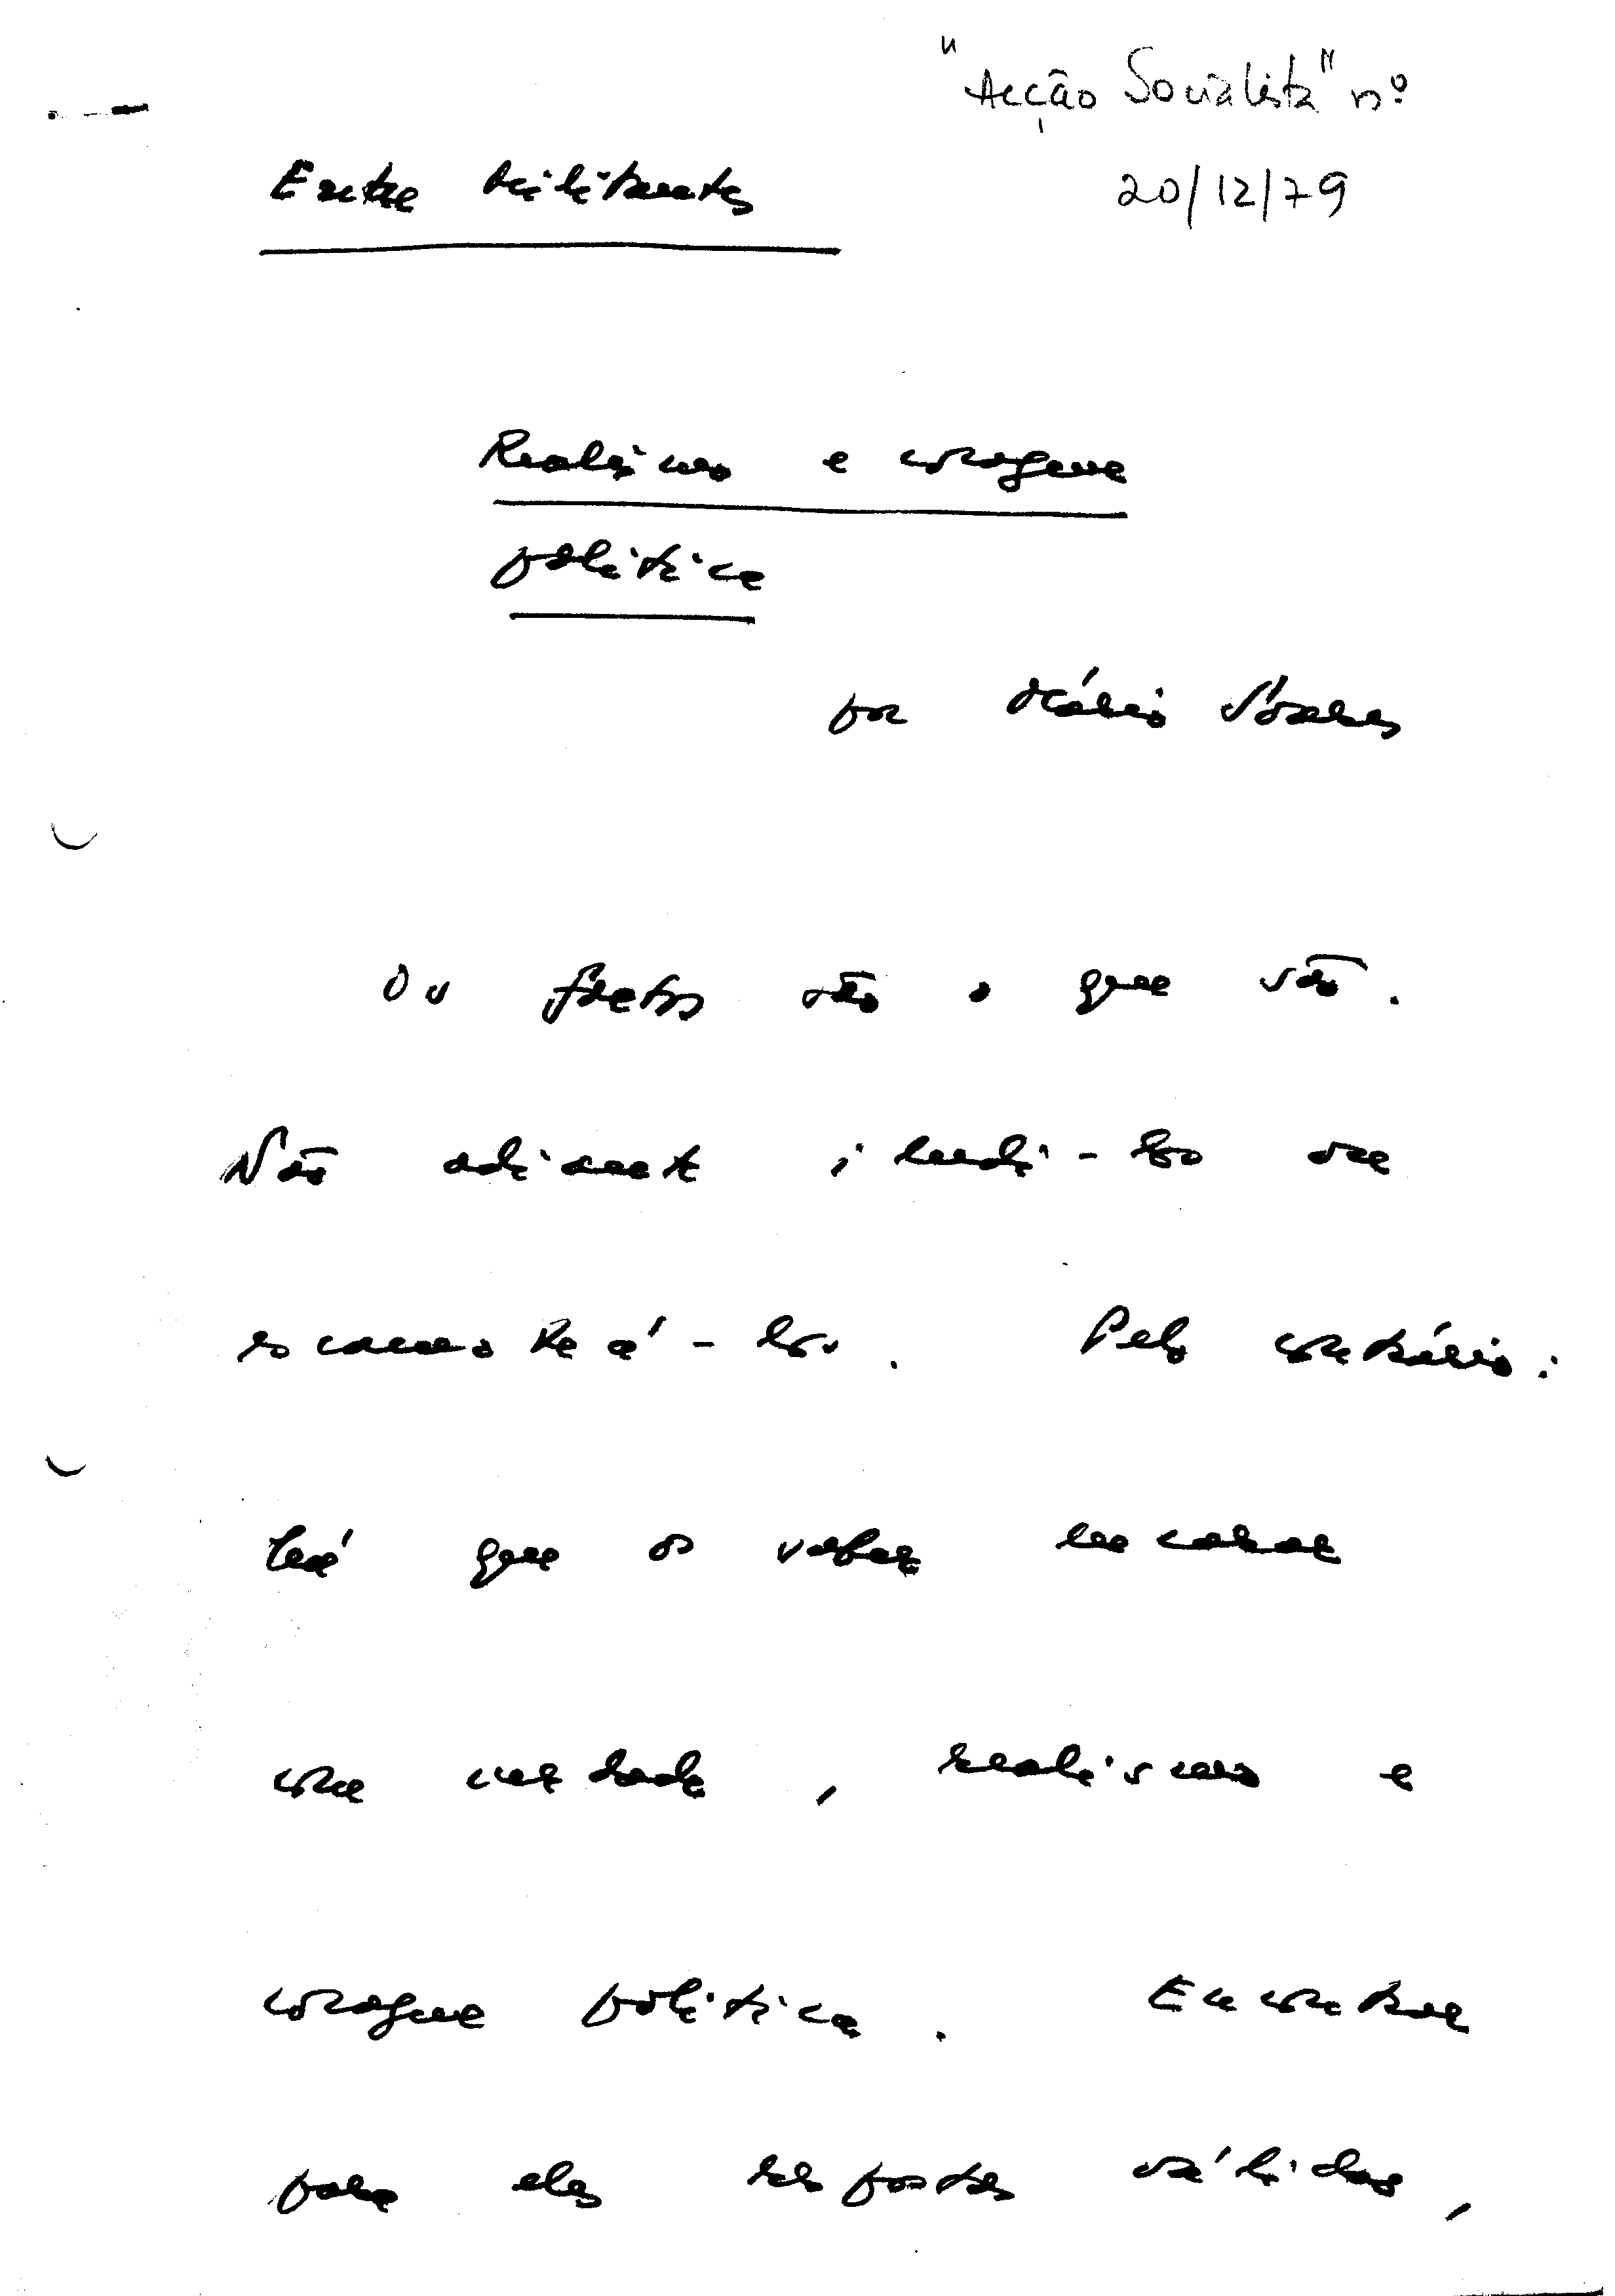 "Acção Socialista" nº
Entre Militantes
20/12/79
Realismo e coragem
política
por Mário Soares
Os factos são o que são.
Não adianta iludi-los ou
escamoteá-los. Pelo contrário:
há que os saber encarar
com verdade, realismo e
coragem política. Encontrar
para eles respostas válidas,